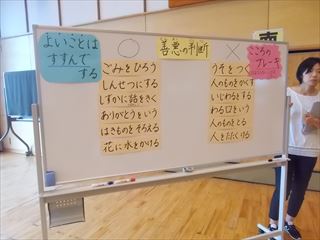 よいことは
すすんで
する
○
善悪の判断
×
こころの
ブレーキ
ごみをひろう
しんせつにする
しずかに話をきく
ありがとうという
はきものをそろえる
花に水をかける
うそをつく
人のものをかくす
いじわるをする
わる口をいう
人のものをとる
人をたたくける